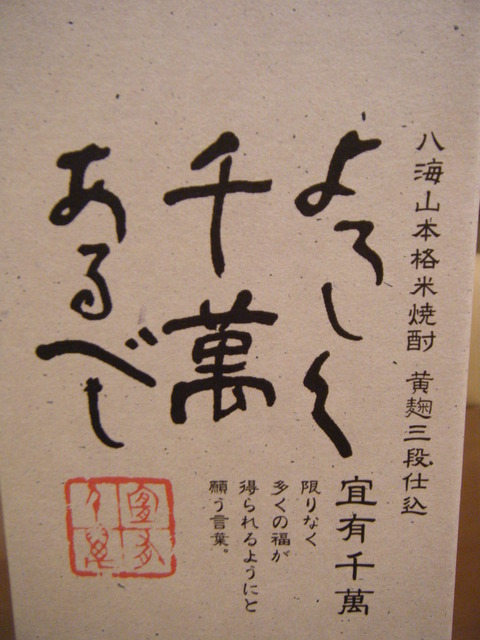 八海山本格米焼酎 黄麹三段仕込
よろしく
千萬
あるべし
宜有千萬
限りなく
多くの福が
得られるようにと
願う言葉。
宜有
千萬